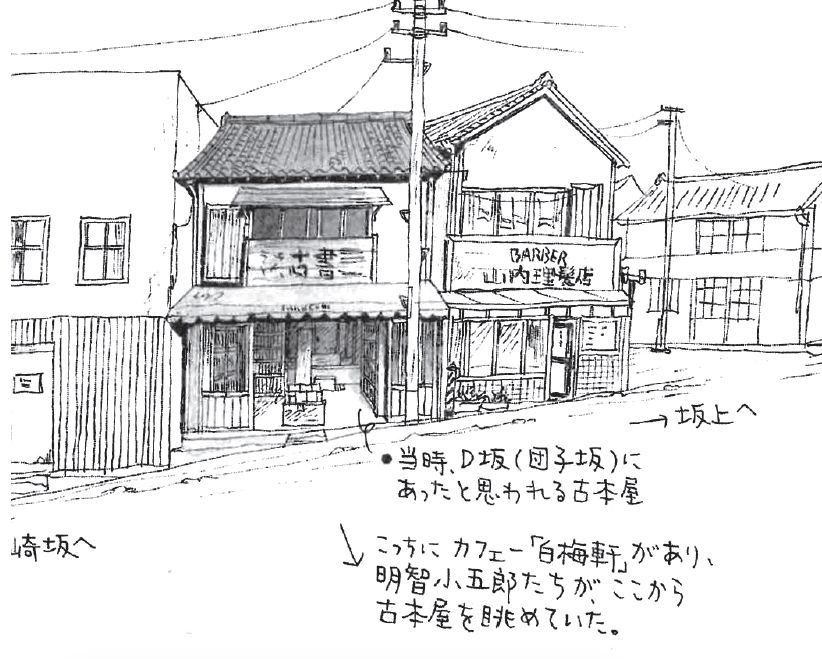 BARBER
山内理髪店
→ 坂上へ
• 当時、D坂(団子坂)に
あったと思われる古本屋
崎坂へ
こっちに カフェー「白梅軒」があり、
明智小五郎たちが、ここから
古本屋を眺めていた。